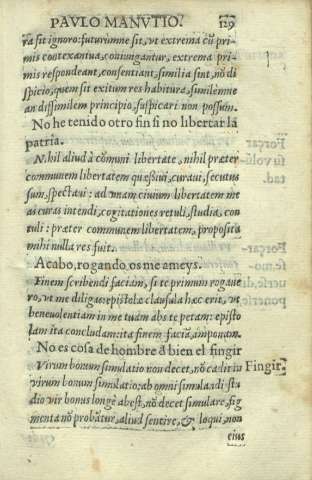 PAVLO MANVTIO. 129
ra sit ignoro: futurúmne sit, vt extrema cū pri-
mis contexantur, coniungantur, extrema pri-
mis respondeant, consentiant, similia sint, nō di
spicio, quem sit exitum res habitura, similémne
an dissimilem principio, suspicari non possum.
No he tenido otro fin si no libertar la
patria.
Nihil aliud à cōmuni libertate, nihil præter
communem libertatem quæsiui, curaui, secutus
sum, spectaui: ad vnam ciuium libertatem me
as curas intendi, cogitationes retuli, studia, con
tuli: præter communem libertatem, proposita
mihi nulla res fuit.
Acabo, rogando os me ameys.
Finem scribendi faciam, si te primum rogaue
ro, vt me diligas: epistolæ clausula hæc erit, vt
beneuolentiam in me tuam abs te petam: episto
lam ita concludam: ita finem faciā, imponam.
No es cosa de hombre d bien el fingir
Virum bonum simulatio non decet, nō cadit in Fingir.
virum bonum simulatio: ab omni simulandi stu
dio vir bonus longè abest, nō decet simulare, fig
menta nō probātur, aliud sentire, & loqui, non
eius